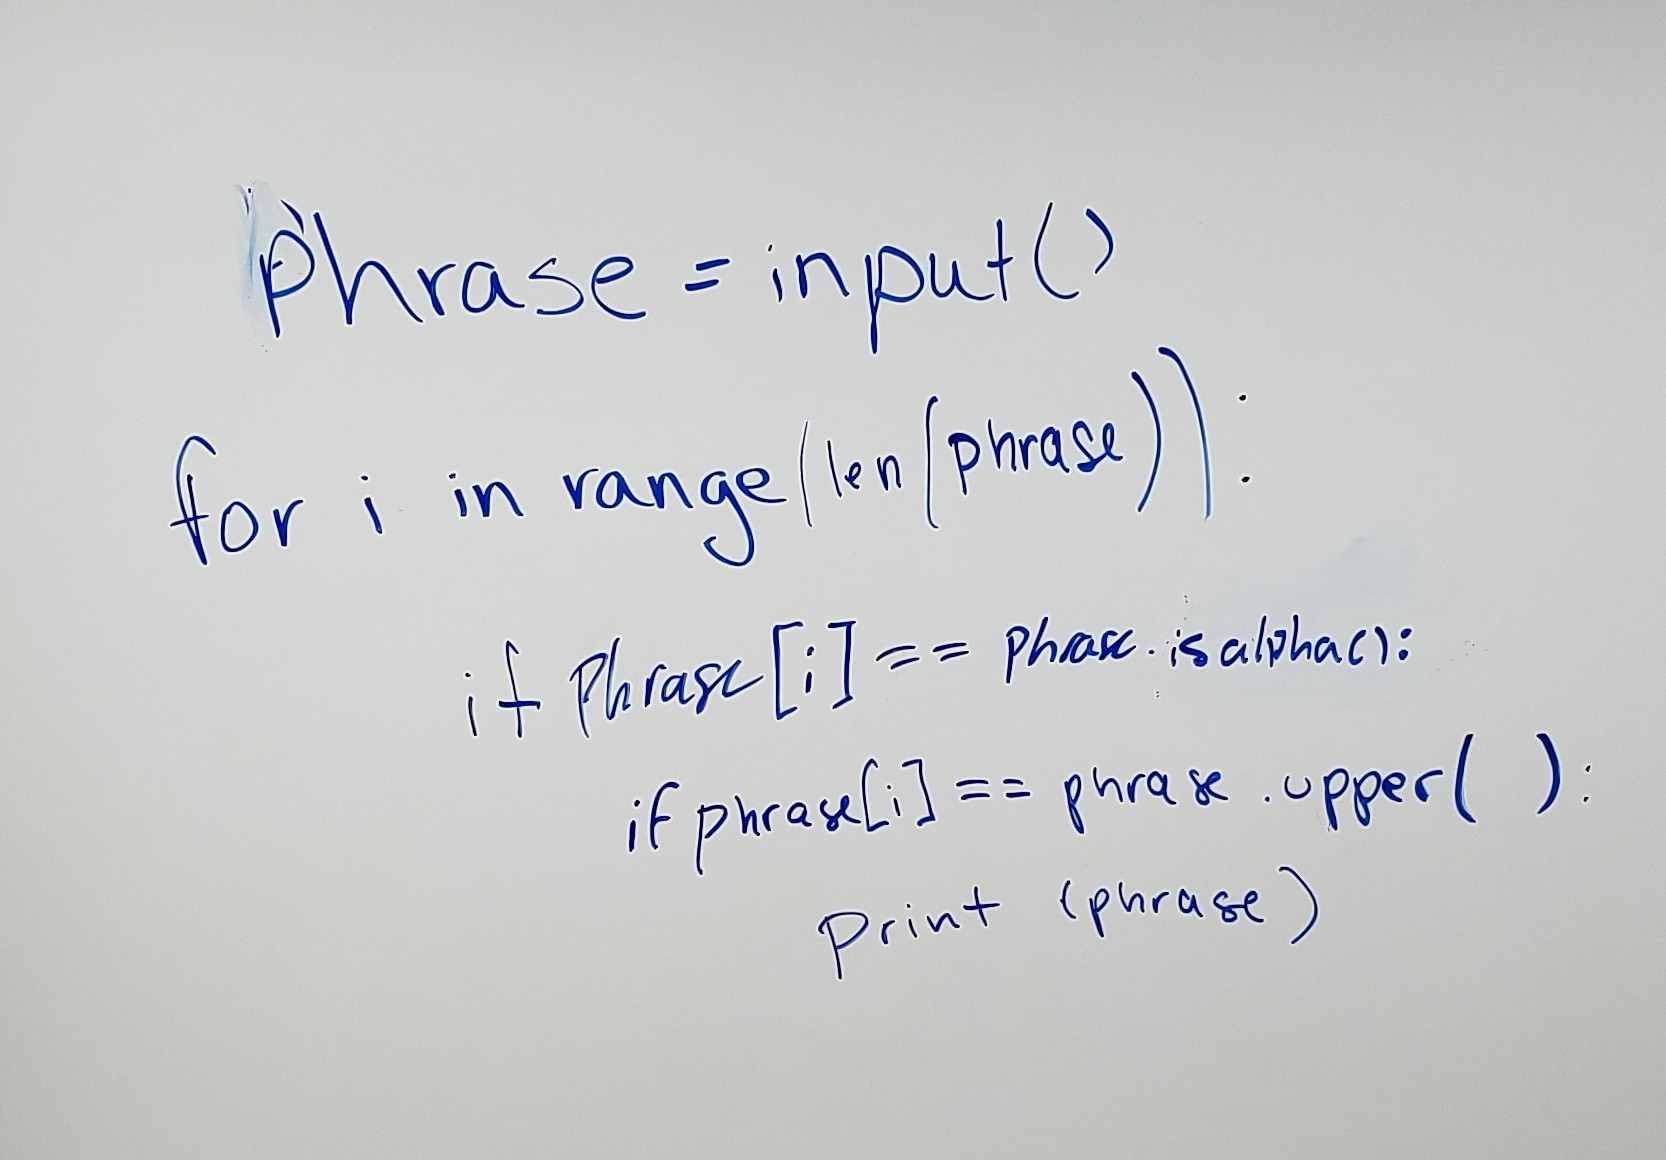 phrase = input()
for i in range(len(phrase)):
if Phrase[i] == phrase.isalpha():
if phrase[i] == phrase.upper( ):
print (phrase)